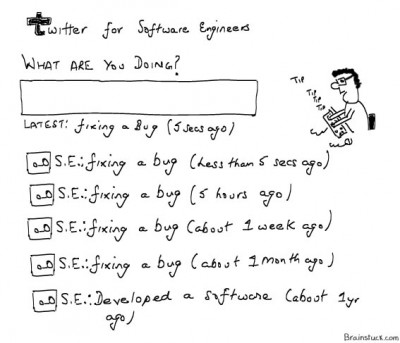 Twitter for Software Engineers
WHAT ARE YOU DOING?
LATEST: fixing a Bug (5 secs ago)
TIP
TIP
TIP
TIP
S.E.: fixing a bug (Less than 5 secs ago)
S.E.: fixing a bug (5 hours ago)
S.E.: fixing a bug (about 1 week ago)
S.E.: fixing a bug (about 1 month ago)
S.E.: Developed a Software (about 1 yr
ago)
Brainstuck.com